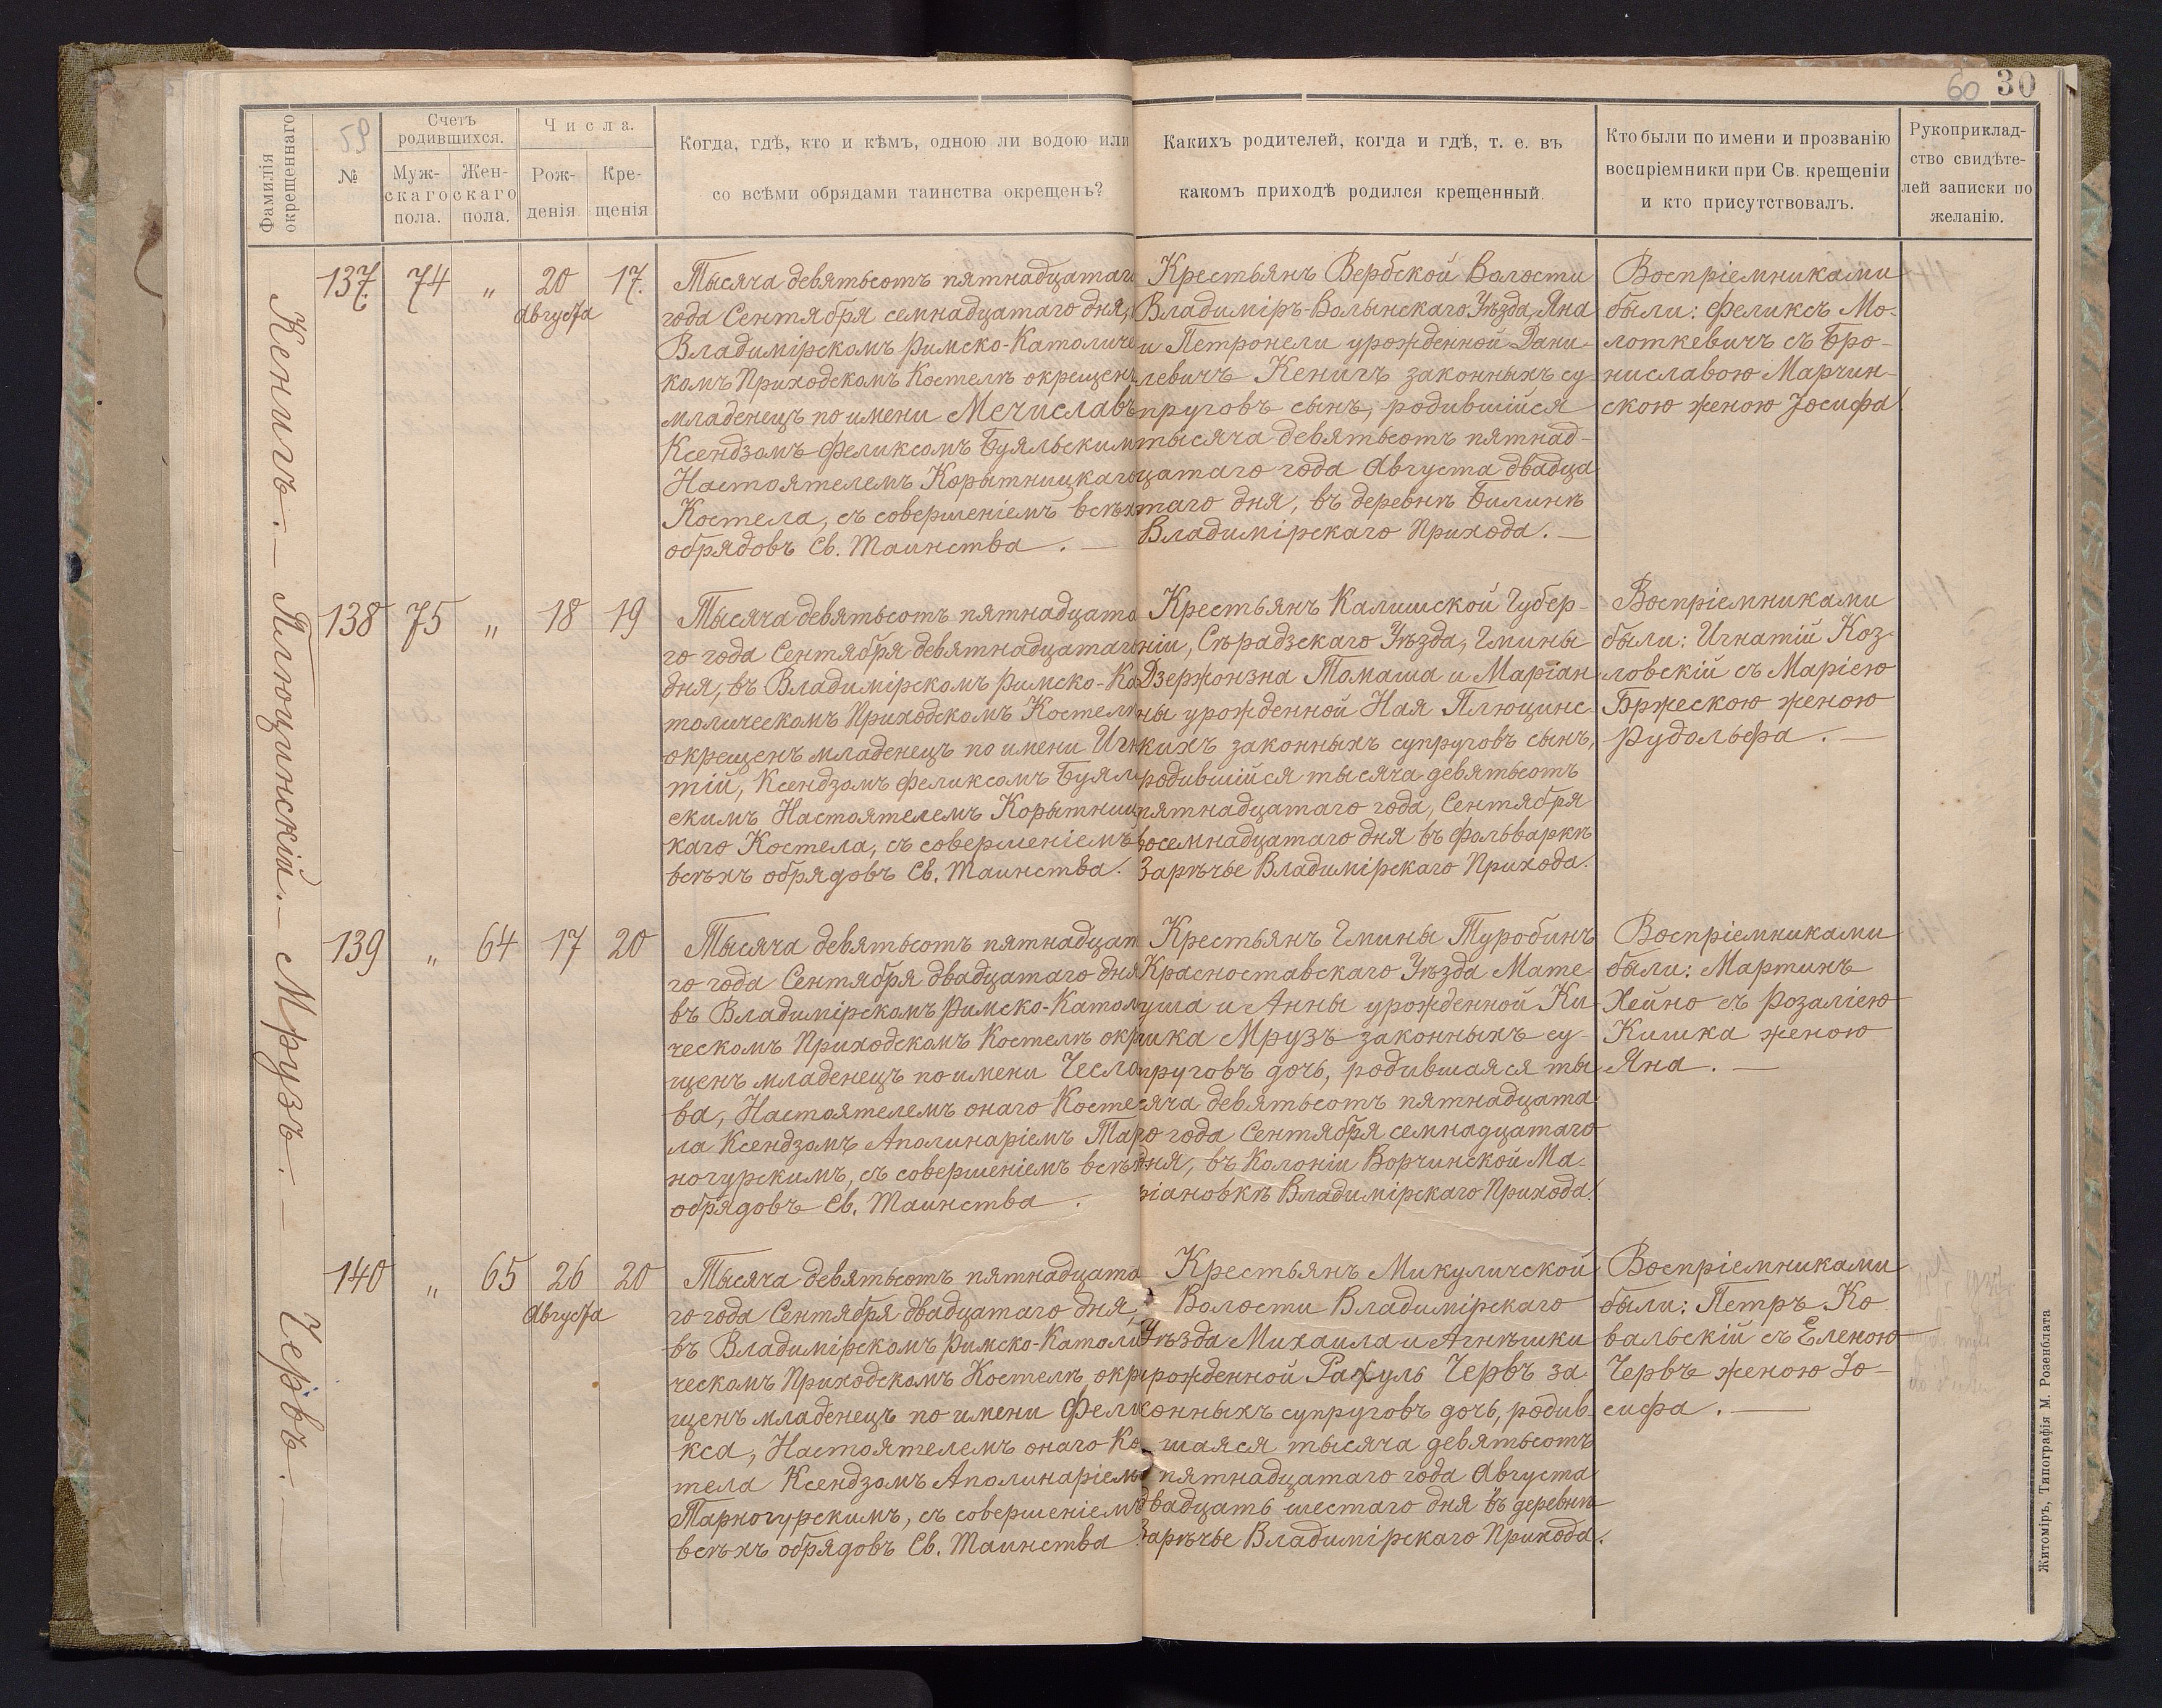 60 30
Фамилія
окрещеннаго
59
№
Счетъ
родившихся.
Муж-
скаго
пола.
Жен-
скаго
пола.
Числа.
Рож-
денія
Кре-
щенія
Когда, гдѣ, кто и кѣмъ, одною ли водою или
со всѣми обрядами таинства окрещенъ?
Какихъ родителей, когда и гдѣ, т. е. въ
какомъ приходѣ родился крещенный.
Кто были по имени и прозванію
воспріемники при Св. крещеніи
и кто присутствовалъ.
Рукоприклад-
ство свидѣте-
лей записки по
желанію.
Кенигъ. —
137. 74 „ 20 17.
Августа
Тысяча девятьсотъ пятнадцатаго
года Сентября семнадцатаго дня,
Владимірскомъ Римско-Католиче
комъ Приходскомъ Костелѣ окрещенъ
младенецъ по имени Мечиславъ
Ксендзомъ Феликсомъ Буяльским
Настоятелемъ Корытницкаго
Костела, съ совершеніемъ всѣхъ
обрядовъ Св. Таинства. —
Крестьянъ Вербской Волости
Владиміръ-Волынскаго Уѣзда, Яна
и Петронели урожденной Дани-
левичъ Кенигъ законныхъ су-
пруговъ сынъ, родившійся
тысяча девятьсотъ пятнад-
цатаго года Августа двадца
таго дня, въ деревнѣ Билинѣ
Владимірскаго Прихода. —
Воспріемниками
были: Феликсъ Мо-
лоткевичъ съ Бро-
ниславою Марчин-
скою женою Іосифа.
Плюцинскій. —
138 75 „ 18 19
Тысяча девятьсотъ пятнадцата
го года Сентября девятнадцатаго
дня, въ Владимірскомъ Римско-Ка
толическомъ Приходскомъ Костелѣ
окрещенъ младенецъ по имени Игн
тій, Ксендзомъ Феликсомъ Буял
скимъ Настоятелемъ Корытниц
каго Костела, съ совершеніемъ
всѣхъ обрядовъ Св. Таинства.
Крестьянъ Калишской Губер-
ніи, Сѣрадзскаго Уѣзда, Гмины
Дзержонзна Томаша и Маріан
ны урожденной Ная Плюцинс-
кихъ законныхъ супруговъ сынъ,
родившійся тысяча девятьсотъ
пятнадцатаго года, Сентября
восемнадцатаго дня въ фольваркѣ
Зарѣчье Владимірскаго Прихода.
Воспріемниками
были: Игнатій Коз-
ловскій съ Маріею
Бржескою женою
Рудольфа. —
Мрузъ. —
139 „ 64 17 20
Тысяча девятьсотъ пятнадцат
го года Сентября двадцатаго дня
въ Владимірскомъ Римско-Катол
ческомъ Приходскомъ Костелѣ окр
щенъ младенецъ по имени Чесла
ва, Настоятелемъ онаго Косте
ла Ксендзомъ Аполинаріемъ Тар
ногурскимъ, съ совершеніемъ всѣхъ
обрядовъ Св. Таинства.
Крестьянъ Гмины Туробинъ
Красноставскаго Уѣзда Мате-
уша и Анны урожденной Ки-
шка Мрузъ законныхъ су-
пруговъ дочь, родившаяся ты
сяча девятьсотъ пятнадцата
го года Сентября семнадцатаго
дня, въ Колоніи Ворчинской Ма-
ріановкѣ Владимірскаго Прихода.
Воспріемниками
были: Мартинъ
Хейно съ Розаліею
Кишка женою
Яна. —
Червъ. —
140 „ 65 26 20
Августа
Тысяча девятьсотъ пятнадцата
го года Сентября двадцатаго дня,
въ Владимірскомъ Римско-Католи
ческомъ Приходскомъ Костелѣ окре
щенъ младенецъ по имени Фели
кса, Настоятелемъ онаго Ко
тела Ксендзомъ Аполинаріемъ
Тарногурскимъ, съ совершеніемъ
всѣхъ обрядовъ Св. Таинства.
Крестьянъ Микуличской
Волости Владимірскаго
Уѣзда Михаила и Агнѣшки
урожденной Рахуль Червъ за
конныхъ супруговъ дочь, родив
шаяся тысяча девятьсотъ
пятнадцатаго года Августа
двадцать шестаго дня въ деревнѣ
Зарѣчье Владимірскаго Прихода.
Воспріемниками
были: Петръ Ко
вальскій съ Еленою
Червъ женою Іо-
сифа. —
Житоміръ, Типографія М. Розенблата